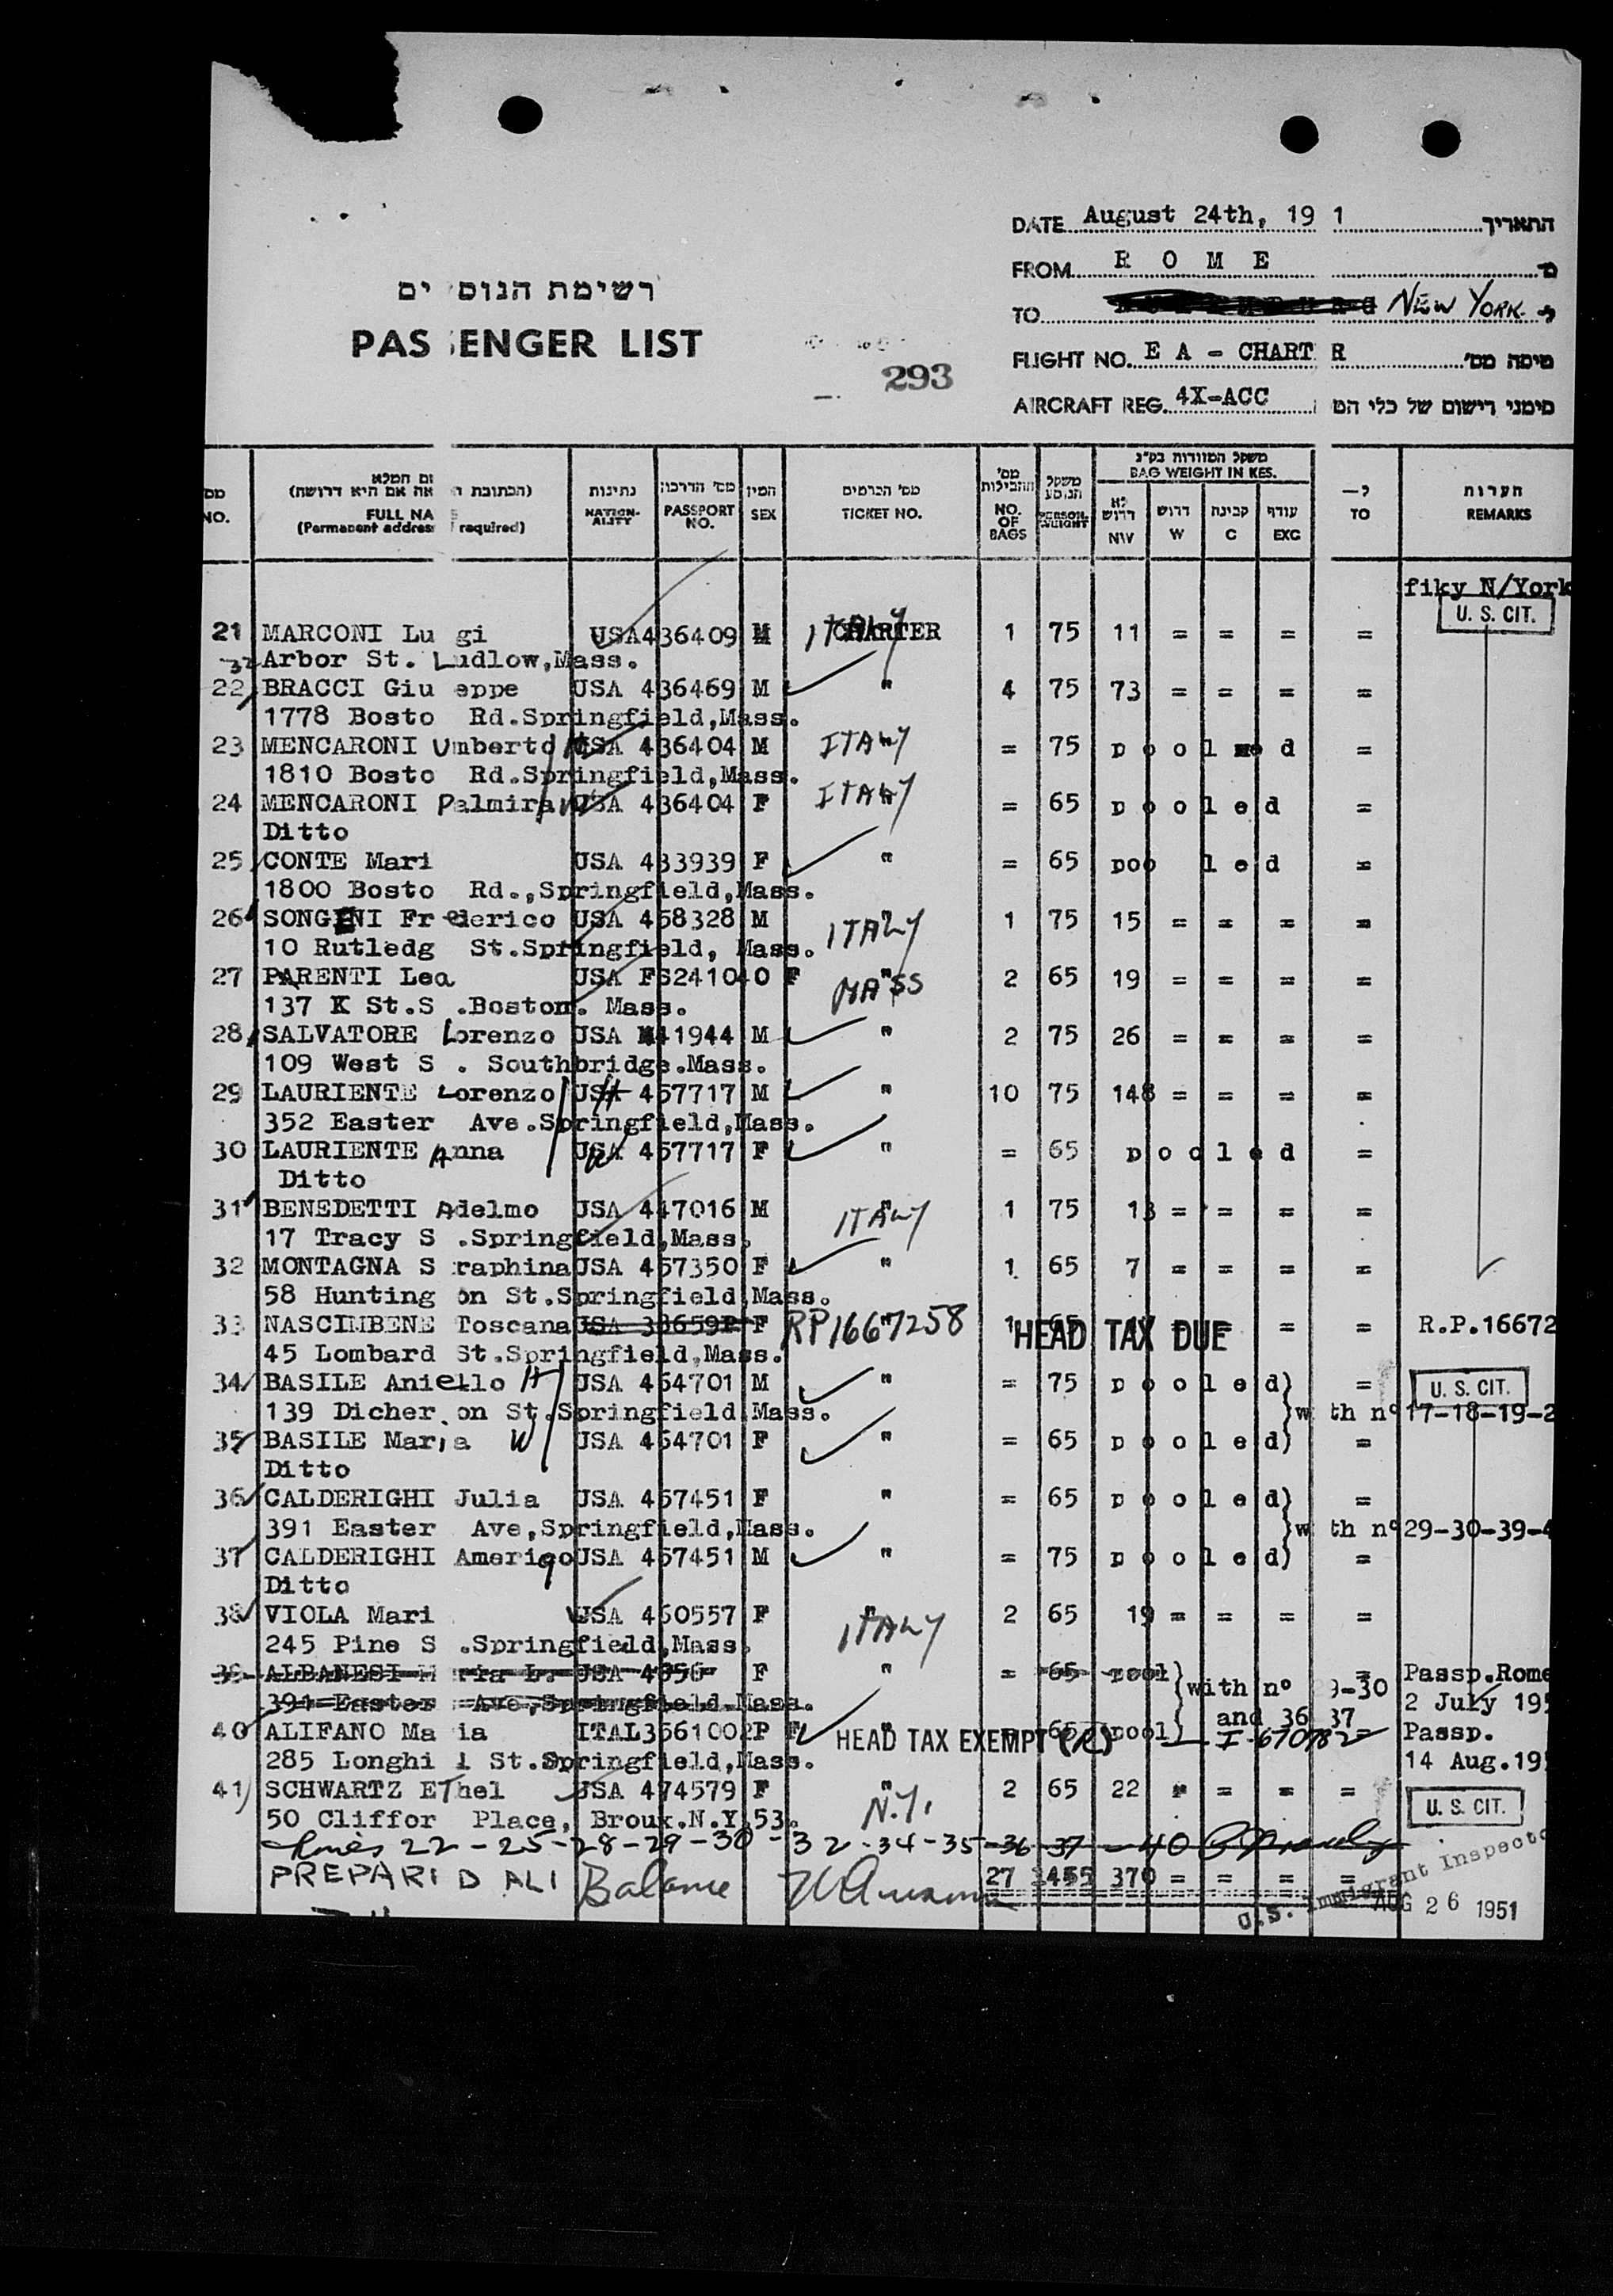 DATE August 24th, 19 1 התאריך
FROM R O M E מ־
TO NEW YORK ל־
רשימת הנוס ים
PAS ENGER LIST
293
FLIGHT NO. E A - CHART R טיסה מס'
AIRCRAFT REG. 4X-ACC סימני רישום של כלי הט
מס NO. ום המלא (הכתובת ה אה אם היא דרושה) FULL NA (Permanent address required) נתינות NATIONALITY מס' הדרכון PASSPORT NO. המין SEX מס' הכרטיס TICKET NO. מס' החבילות NO. OF BAGS משקל הנוסע PERSON. WEIGHT משקל המזוודות בק"ג BAG WEIGHT IN KGS. לא דרוש NW דרוש W קבינה C עודף EXC ל– TO הערות REMARKS
fiky N/York
U. S. CIT.
21 MARCONI Lu gi USA436409 M CHARTER ITALY 1 75 11 = = = =
32 Arbor St. Ludlow,Mass.
22 BRACCI Giu eppe USA 436469 M " 4 75 73 = = = =
1778 Bosto Rd.Springfield,Mass.
23 MENCARONI Umberto H USA 436404 M ITALY = 75 p o o l e d =
1810 Bosto Rd.Springfield,Mass.
24 MENCARONI Palmira W USA 436404 F ITALY = 65 p o o l e d =
Ditto
25 CONTE Mari USA 433939 F " = 65 poo l e d =
1800 Bosto Rd.,Springfield,Mass.
26 SONGENI Fr ederico USA 458328 M " ITALY 1 75 15 = = = =
10 Rutledg St.Springfield, Mass.
27 PARENTI Lea USA FS241040 F " MASS 2 65 19 = = = =
137 K St.S .Boston. Mass.
28 SALVATORE Lorenzo USA 41944 M " 2 75 26 = = = =
109 West S . Southbridge.Mass.
29 LAURIENTE Lorenzo USA H 457717 M " 10 75 148 = = = =
352 Easter Ave.Springfield,Mass.
30 LAURIENTE Anna USA W 457717 F " = 65 p o o l e d =
Ditto
31 BENEDETTI Adelmo USA 447016 M " ITALY 1 75 13 = = = =
17 Tracy S .Springfield,Mass.
32 MONTAGNA S raphina USA 457350 F " 1 65 7 = = = =
58 Hunting on St.Springfield,Mass.
33 NASCIMBENE Toscana USA 33659P F RP1667258 1 65 HEAD TAX DUE = = R.P.16672
45 Lombard St.Springfield,Mass.
34 BASILE Aniello H USA 454701 M " = 75 p o o l e d) = U. S. CIT.
139 Dicher on St.Springfield Mass. w th n° 17-18-19-2
35 BASILE Maria W USA 454701 F " = 65 p o o l e d) =
Ditto
36 CALDERIGHI Julia USA 457451 F " = 65 p o o l e d) =
391 Easter Ave,Springfield,Mass. w th n° 29-30-39-4
37 CALDERIGHI Amerigo USA 457451 M " = 75 p o o l e d) =
Ditto
38 VIOLA Mari USA 460557 F " ITALY 2 65 19 = = = =
245 Pine S .Springfield,Mass.
39 ALBANESI M ria L. USA 4356 F " = 65 pool) with n° 9-30 = Passp.Rome
391 Easter Ave,Springfield.Mass. and 36 37 2 July 195
40 ALIFANO Ma ia ITAL3561002P F HEAD TAX EXEMPT 65 pool) I-670782 Passp.
285 Longhi l St.Springfield,Mass. 14 Aug.195
41 SCHWARTZ EThel USA 474579 F " N.Y. 2 65 22 = = = = U. S. CIT.
50 Cliffor Place, Broux.N.Y.53.
22 - 25 - 28 - 29 - 30 - 32 - 34 - 35 - 36 - 37 - 40
PREPARI D ALI Balance 27 1455 370 = = = =
U.S. Immigrant Inspecto
AUG 26 1951